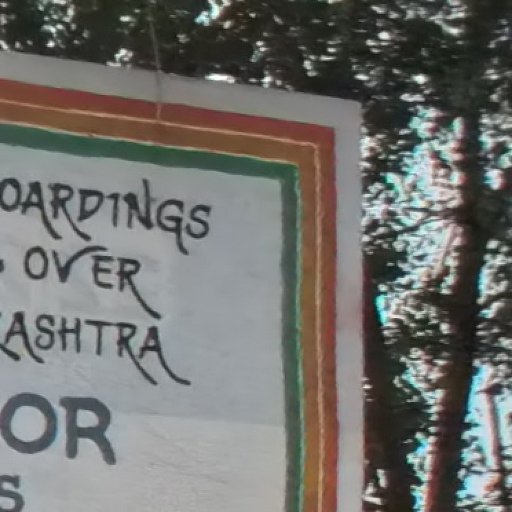 OARDINGS
OVER
ASHTRA
OR
S